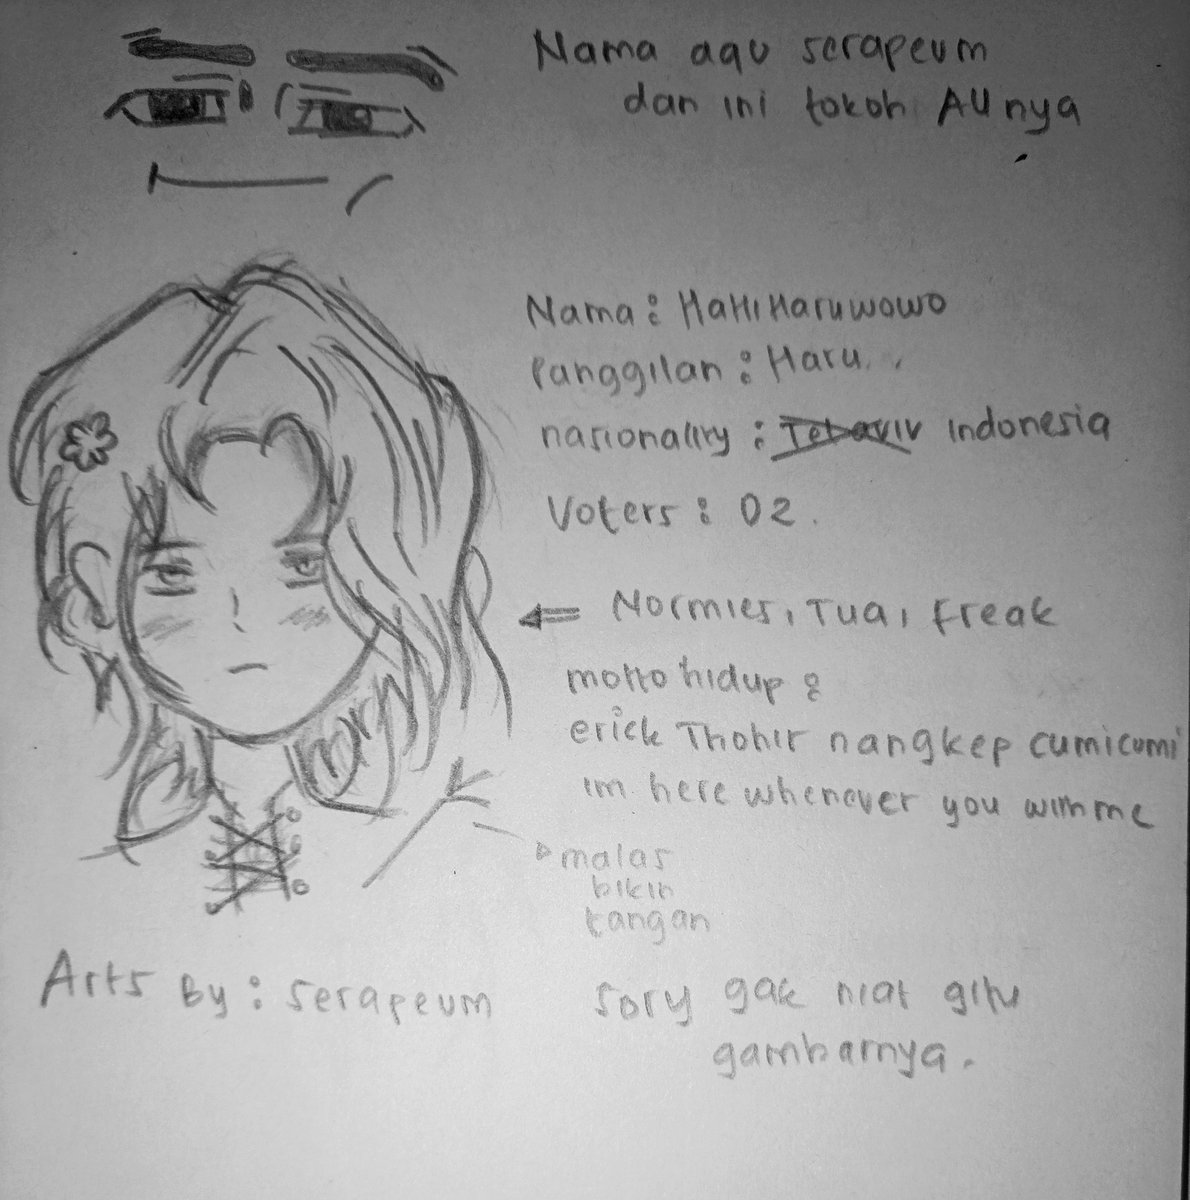 Nama aqu serapeum
dan ini tokoh AUnya
Nama : HaHiHaruwowo
Panggilan : Haru.
nasionality : Telaviv indonesia
Voters : 02.
Normies, Tua, Freak
motto hidup :
erick Thohir nangkep cumicumi
im here whenever you with me
malas
bikin
tangan
Arts By : serapeum
sory gak niat gitu
gambarnya.